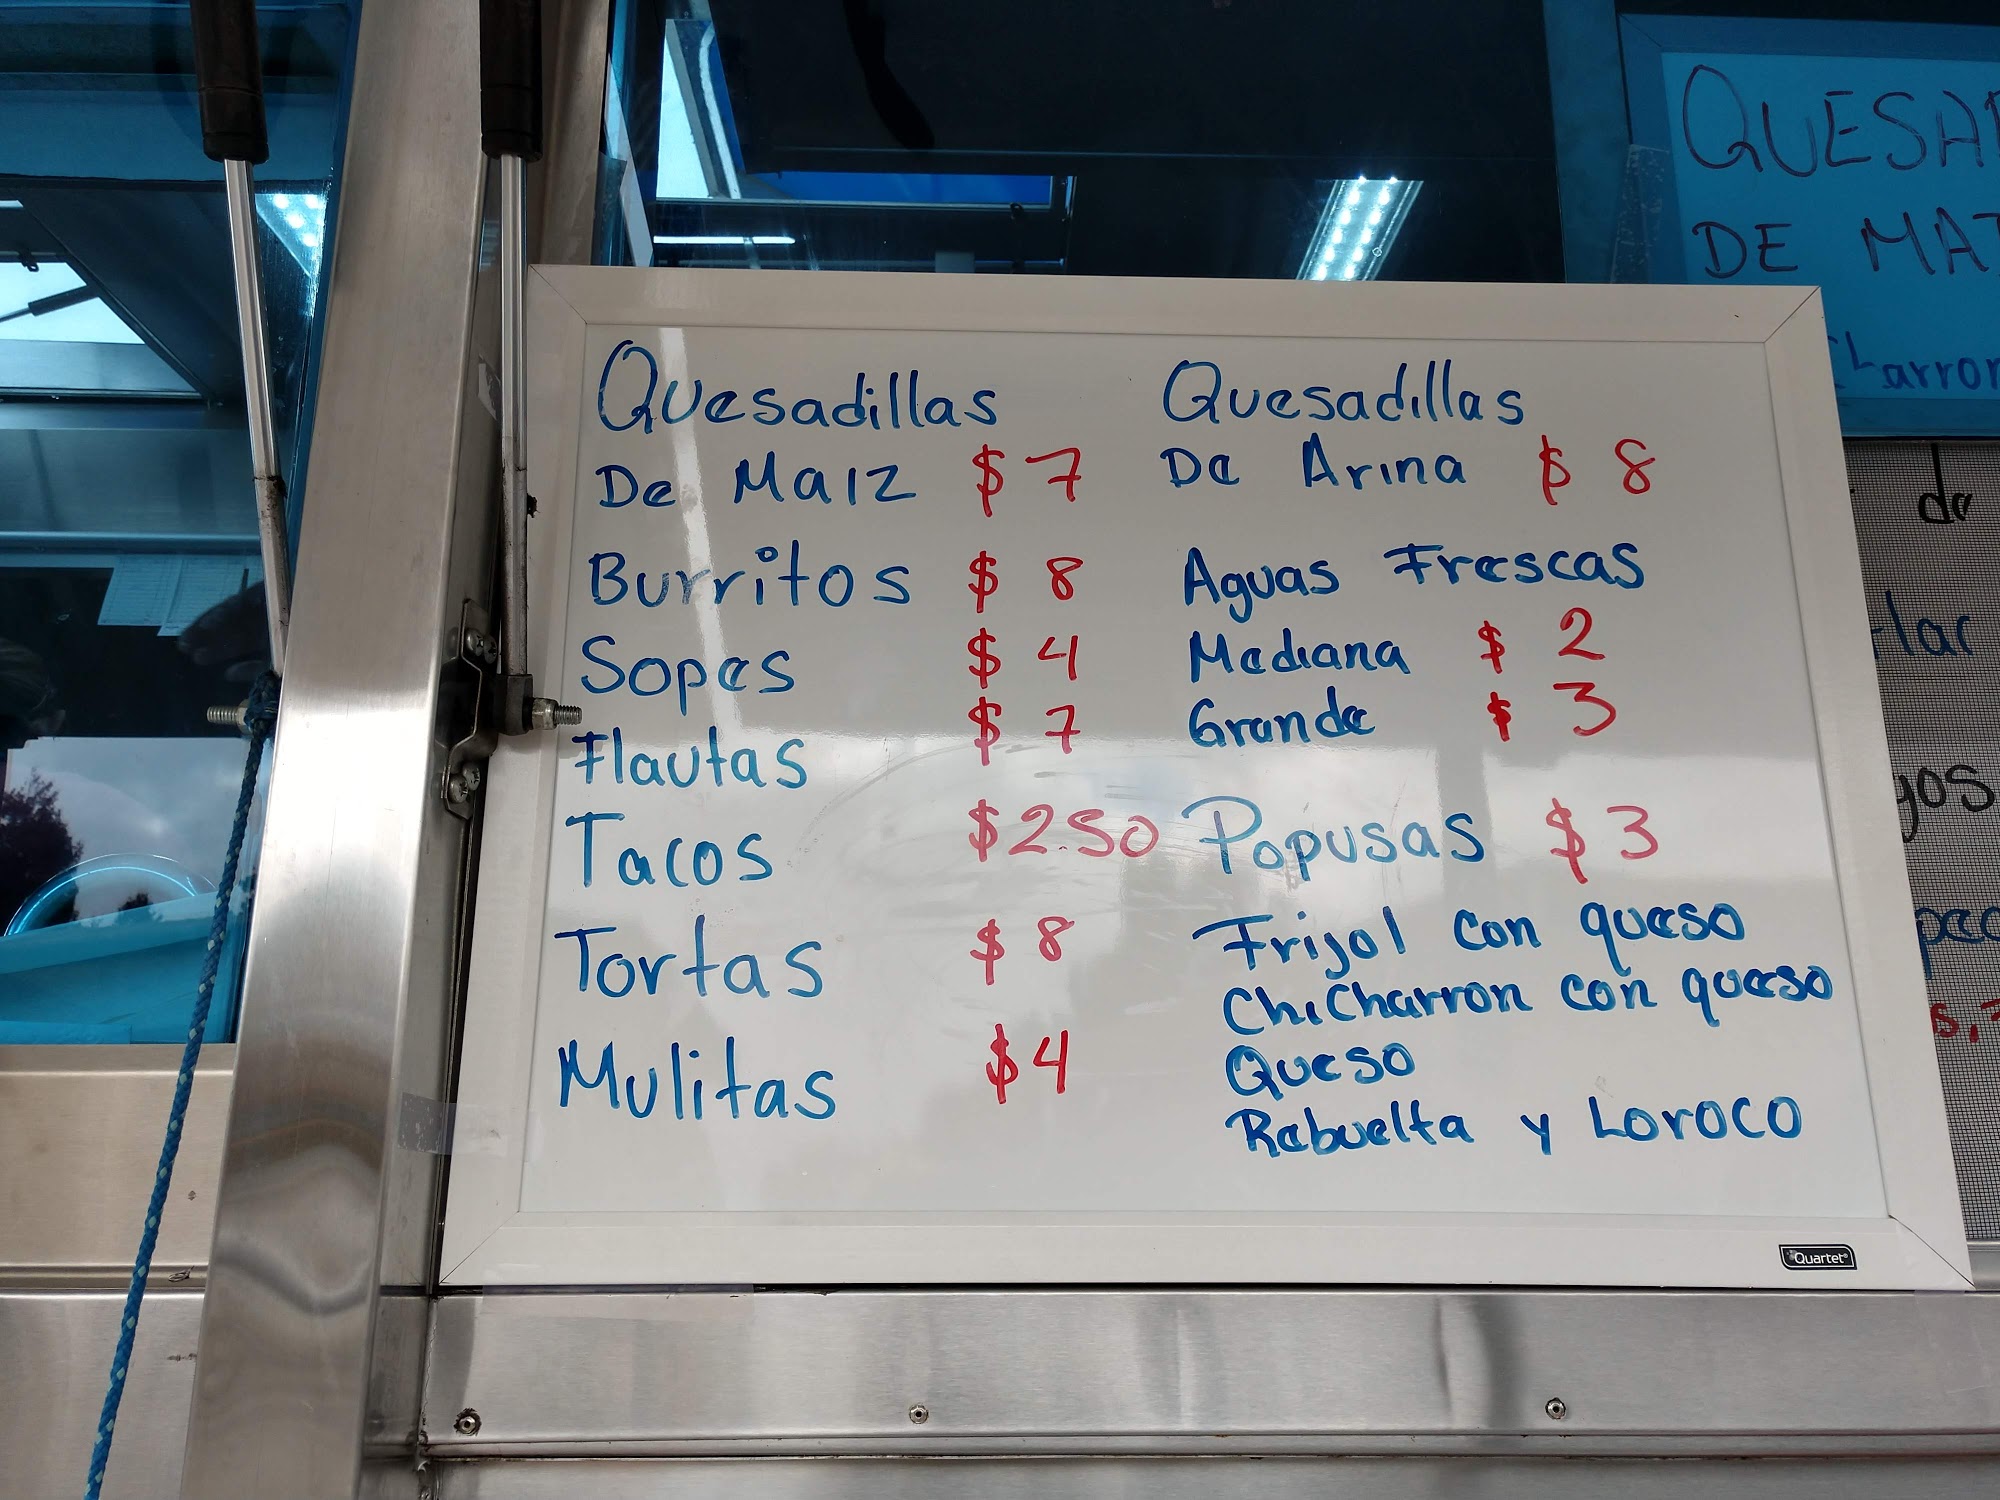 Quesadillas
De Maiz $ 7
Burritos $ 8
Sopes $ 4
Flautas $ 7
Tacos $2.50
Tortas $ 8
Mulitas $4
Quesadillas
De Arina $ 8
Aguas Frescas
Mediana $ 2
Grande $ 3
Popusas $ 3
Frijol con queso
Chicharron con queso
Queso
Rebuelta y Loroco
Quartet
DE
de